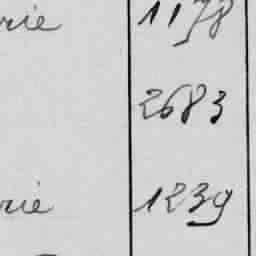 rie 1178
2683
rie 1239